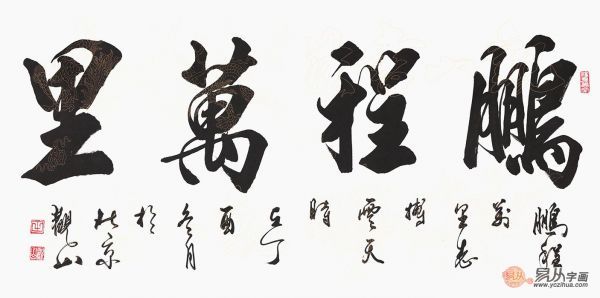 鵬程萬里
鵬程
萬
里志
搏
雲天
時
在丁
酉
冬月
於
北京
觀山
易从字画
www.yczihua.com